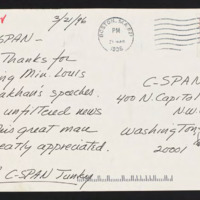 3/21/96
SPAN -
Thanks for
ng Min. Louis
akhan's speeches.
unfiltered news
his great man
eatly appreciated.
C-SPAN Junky
BOSTON, MA
PM
1996
C-SPAN
400 N. Capital
N.W.
Washington
20001